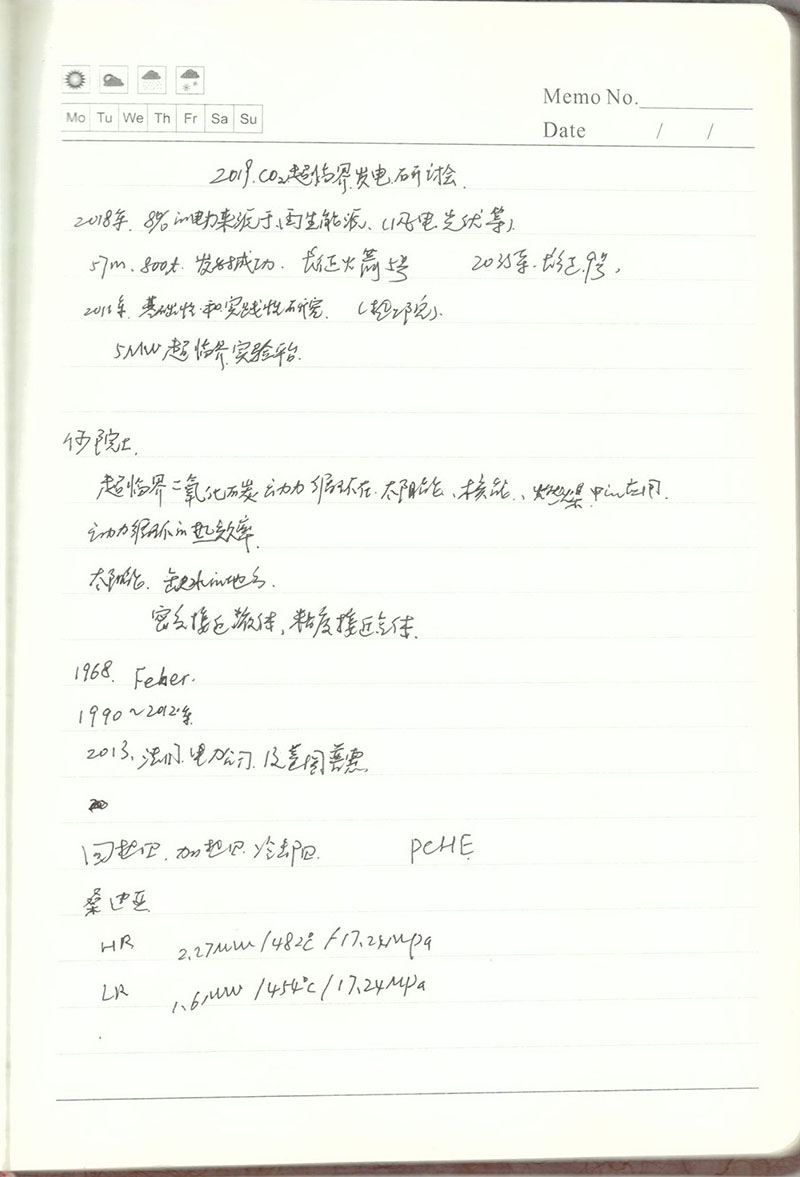 Memo No.
Mo Tu We Th Fr Sa Su
Date / /
2019.CO2超临界发电研讨会.
2018年. 8%的电力来源于再生能源、(风电光伏等).
57m. 800t. 发射成功. 长征火箭5号 2035年.长征9号,
基础性和实践性研究.
5MW超临界实验平台.
何院士.
超临界二氧化碳动力循环在.太阳能、核能、燃煤中的应用.
动力循环的热效率.
太阳能. 缺水的地方.
密度接近液体,粘度接近气体.
1968. Feher.
1990~2012年
2013、法国.电力公司.
回热器.加热器.冷却器. PCHE
桑迪亚
HR 2.27MW/482℃/17.24Mpa
LR 1.6MW/454℃/17.24Mpa